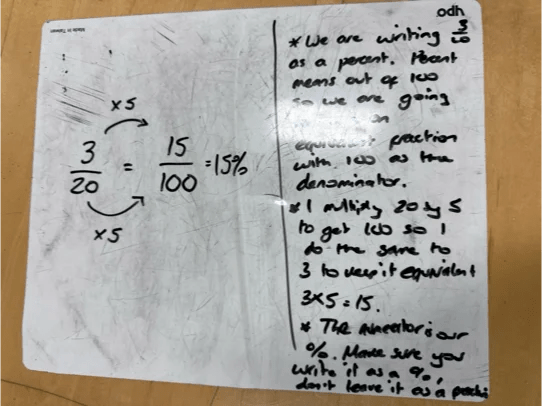 Made in Taiwan
odh
×5
3/20 = 15/100 = 15%
×5
* We are writing 3/20
as a percent. Percent
means out of 100
so we are going
an
equivalent fraction
with 100 as the
denominator.
* I multiply 20 by 5
to get 100 so I
do the same to
3 to keep it equivalent
3×5=15.
* The numerator is our
%. Make sure you
write it as a %,
don't leave it as a